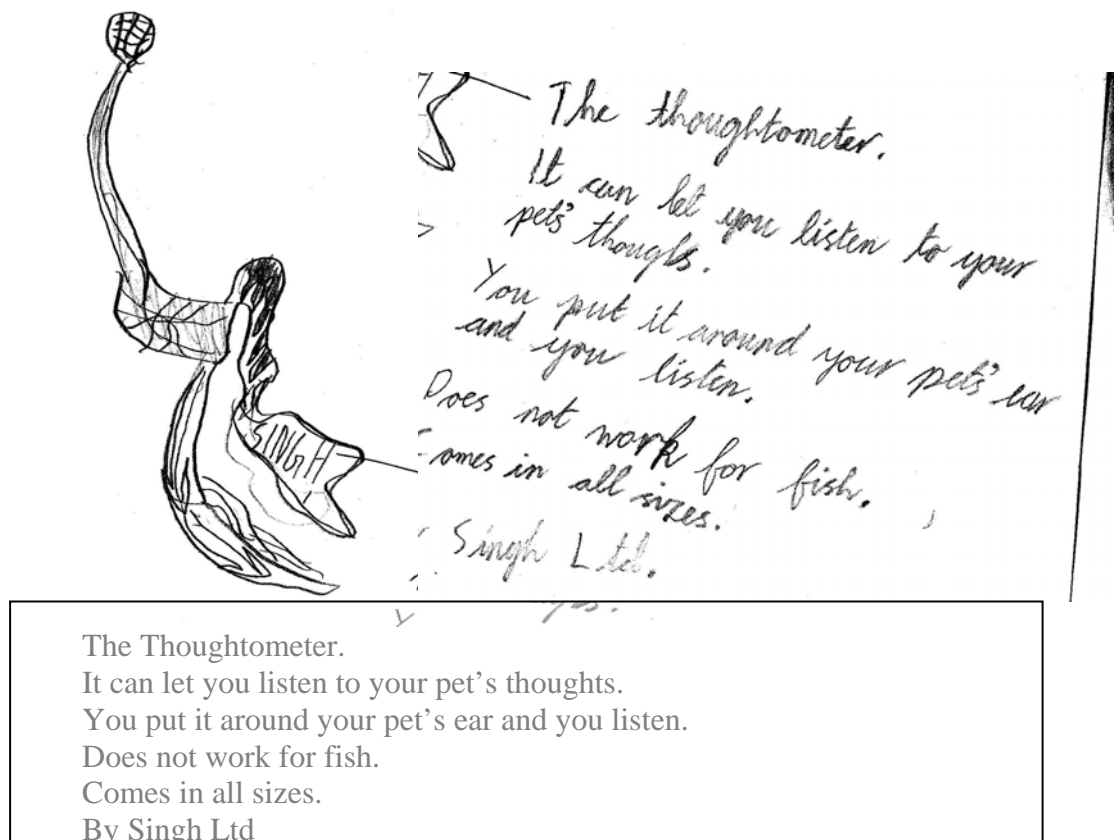 SINGH
The thoughtometer.
It can let you listen to your
pets' thoughts.
You put it around your pets' ear
and you listen.
Does not work for fish.
Comes in all sizes.
Singh Ltd.
The Thoughtometer.
It can let you listen to your pet’s thoughts.
You put it around your pet’s ear and you listen.
Does not work for fish.
Comes in all sizes.
By Singh Ltd